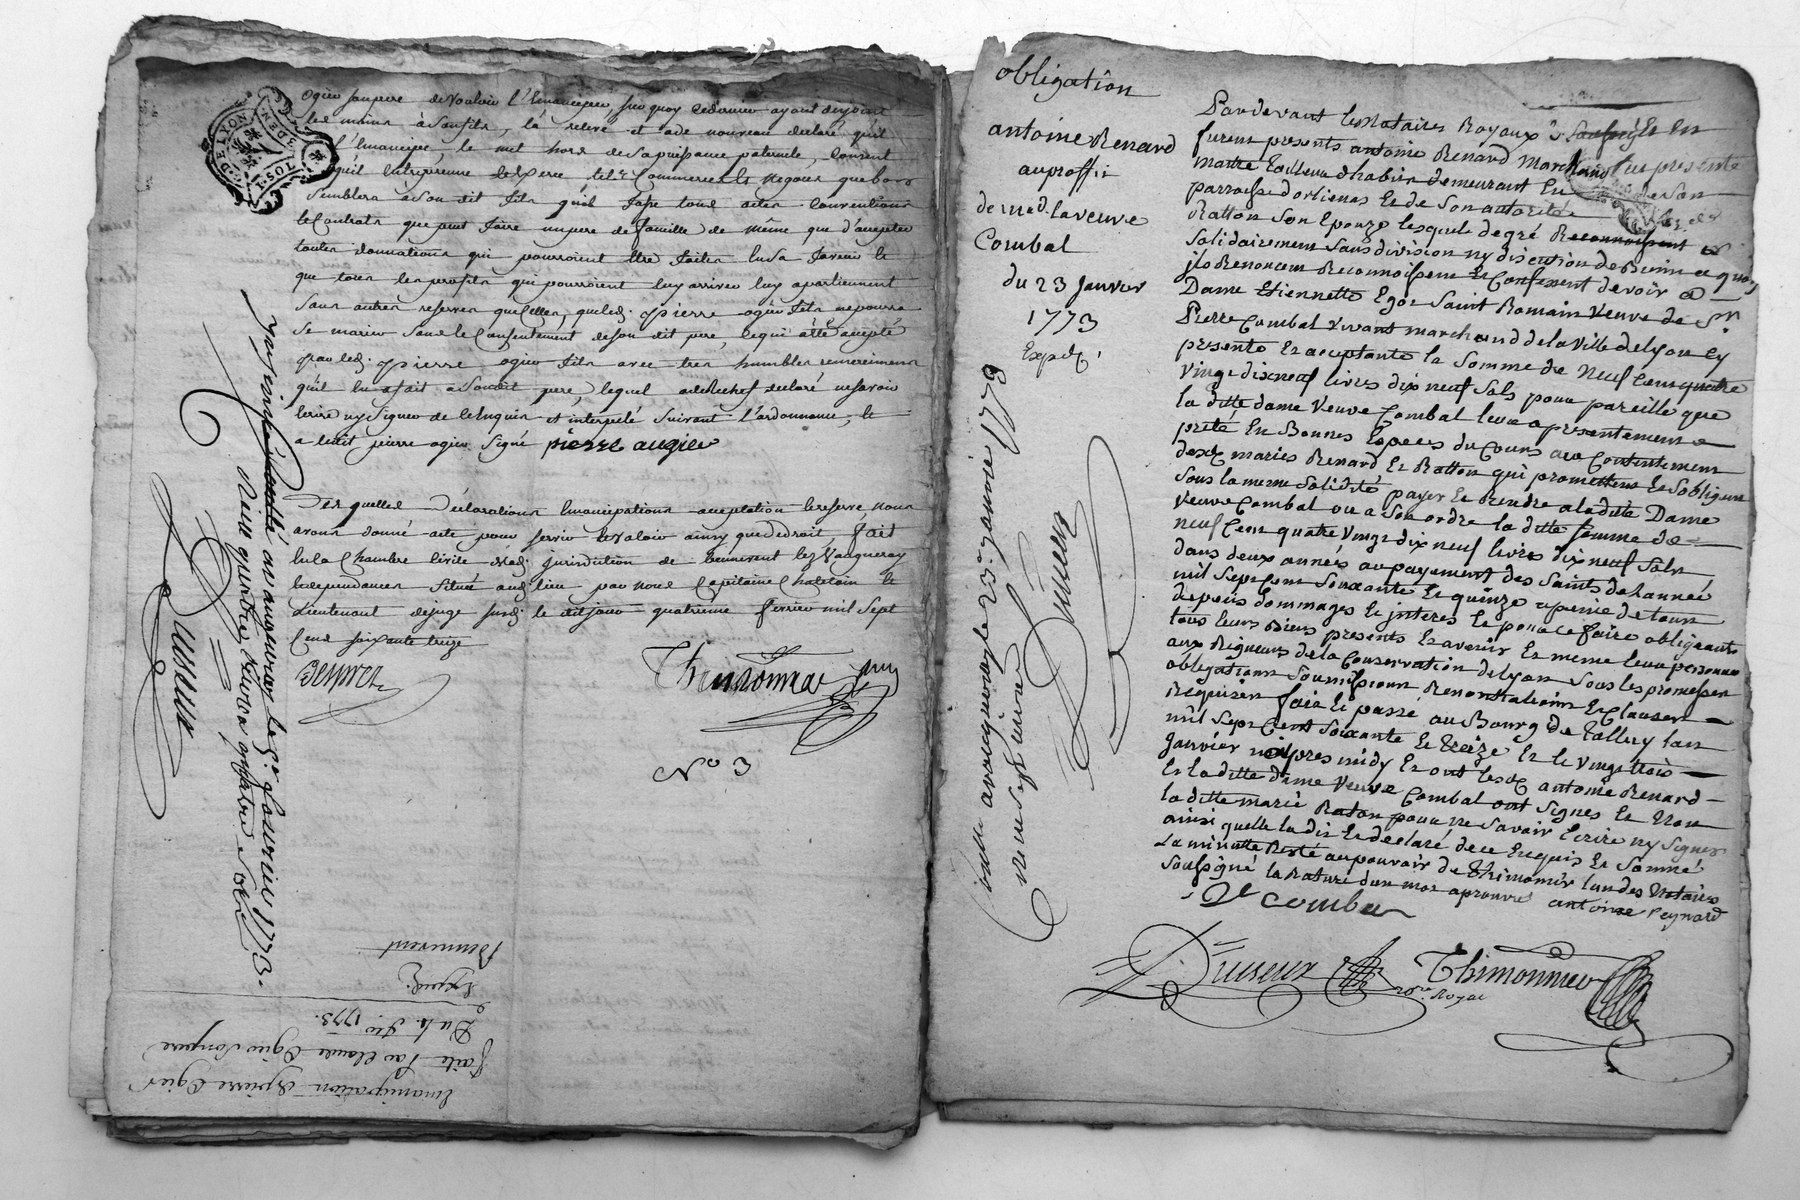 G. DE LYON
DEN
1. SOL
ogier son pere de vouloir l'Emanciper, sur quoy ce dernier ayant disjoint
les mains a son fils, la relevé et a de nouveau declaré qu'il
l'Emancipe, le met hors de sa puissance paternelle, Consent
qu'il Entreprenne tels Commerces et Negoces que bon
Semblera a Son dit fils qu'il fasse tous actes Conventions
et Contrats que peut faire un pere de famille de même que d'accepter
toutes donnations qui pourroient Etre faites En Sa faveur et
que tous les profits qui pourroient luy arriver luy apartiennent
Sans autres reserves que Celles, que led. pierre ogier fils ne pourra
Se marier Sans le Consentement de son dit pere, ce qui a été accepté
par led. pierre ogier fils avec tres humbles remerciments
qu'il En a fait a Son dit pere, lequel a de Rechef declaré ne savoir
Ecrire ny Signer de ce Enquis et interpelé Suivant L'ordonnance, et
a ledit pierre ogier Signé pierre augier
Des quelles Déclarations Emancipations acceptation et reserve, nous
avons donné acte pour servir et valoir ainsy que de droit, fait
En la Chambre Civile de lad. jurisdiction de bennevent les Vaugneray
dependances Située aud. lieu par nous Capitaine Chatelain et
Lieutenant de juge susd. le dit jour quatrieme fevrier mil Sept
Cent soixante treize
Thimonnier
No 3
a vaugneray le 5e fevrier 1773.
Reçu quatre livres quatre sols
Duseux
Emancipation de pierre Ogier
faite Par Claude Ogier Son pere
Du 4. fev. 1773.
Expedé.
Bennevent
obligation
antoine Renard
au proffit
de med. la veuve
Combal
du 23 Janvier
1773
Exped.
a vaugneray le 23e Janvier 1773
Duseux
Pardevant les Notaires Royaux Soussignés En
furent presents antoine Renard Marchand
maitre tailleur d'habits demeurant En
parroisse d'orlienas Et de Son autorité
Ratton Son Epouze lesquels de gré Reconnoissent
Solidairement Sans division ny discution de Biens a quoy
jls Renoncent Reconnoissent Et Confessent devoir a
Dame Etiennette Egoz Saint Romain Veuve de Sr.
Pierre Combal vivant marchand de la Ville de Lyon Cy
presente Et acceptante la Somme de Neuf Cent quatre
vingt dix neuf livres dix neuf Sols pour pareille que
la ditte dame Veuve Combal leur a presentement
prêté En Bonnes Especes du Cours au Contentement
desd. mariés Renard Et Ratton qui promettent Et S'obligent
Sous la meme Solidité payer Et Rendre a la ditte Dame
Veuve Combal ou a Son ordre la ditte Somme de
neuf Cent quatre vingt dix neuf livres dix neuf Sols
dans deux années au payement des Saints de l'année
mil Sept Cent Soixante Et quinze a peine de tous
depens dommages Et interes Et pour ce faire obligeants
tous leurs Biens presents Et avenir Et meme leurs personnes
aux Rigueurs de la Conservation de Lyon Sous les promesses
obligations Soumissions Renontiations Et Clauses
Requises fait Et passé au Bourg de Talluy L'an
mil Sept Cent Soixante Et treize Et le vingt trois
Janvier apres midy Et ont lesd. antoine Renard
Et la ditte dame Veuve Combal ont Signes Et Non
la ditte marie Raton pour ne Savoir Ecrire ny Signer
ainsi quelle la dit Et declaré de ce Enquis Et Sommé
La minutte Resté au pouvoir de Thimonnier l'un des Notaires
Soussigné la Rature d'un mot aprouvé antoine reynard
Ve combal
Duseux Thimonnier
nore Royal